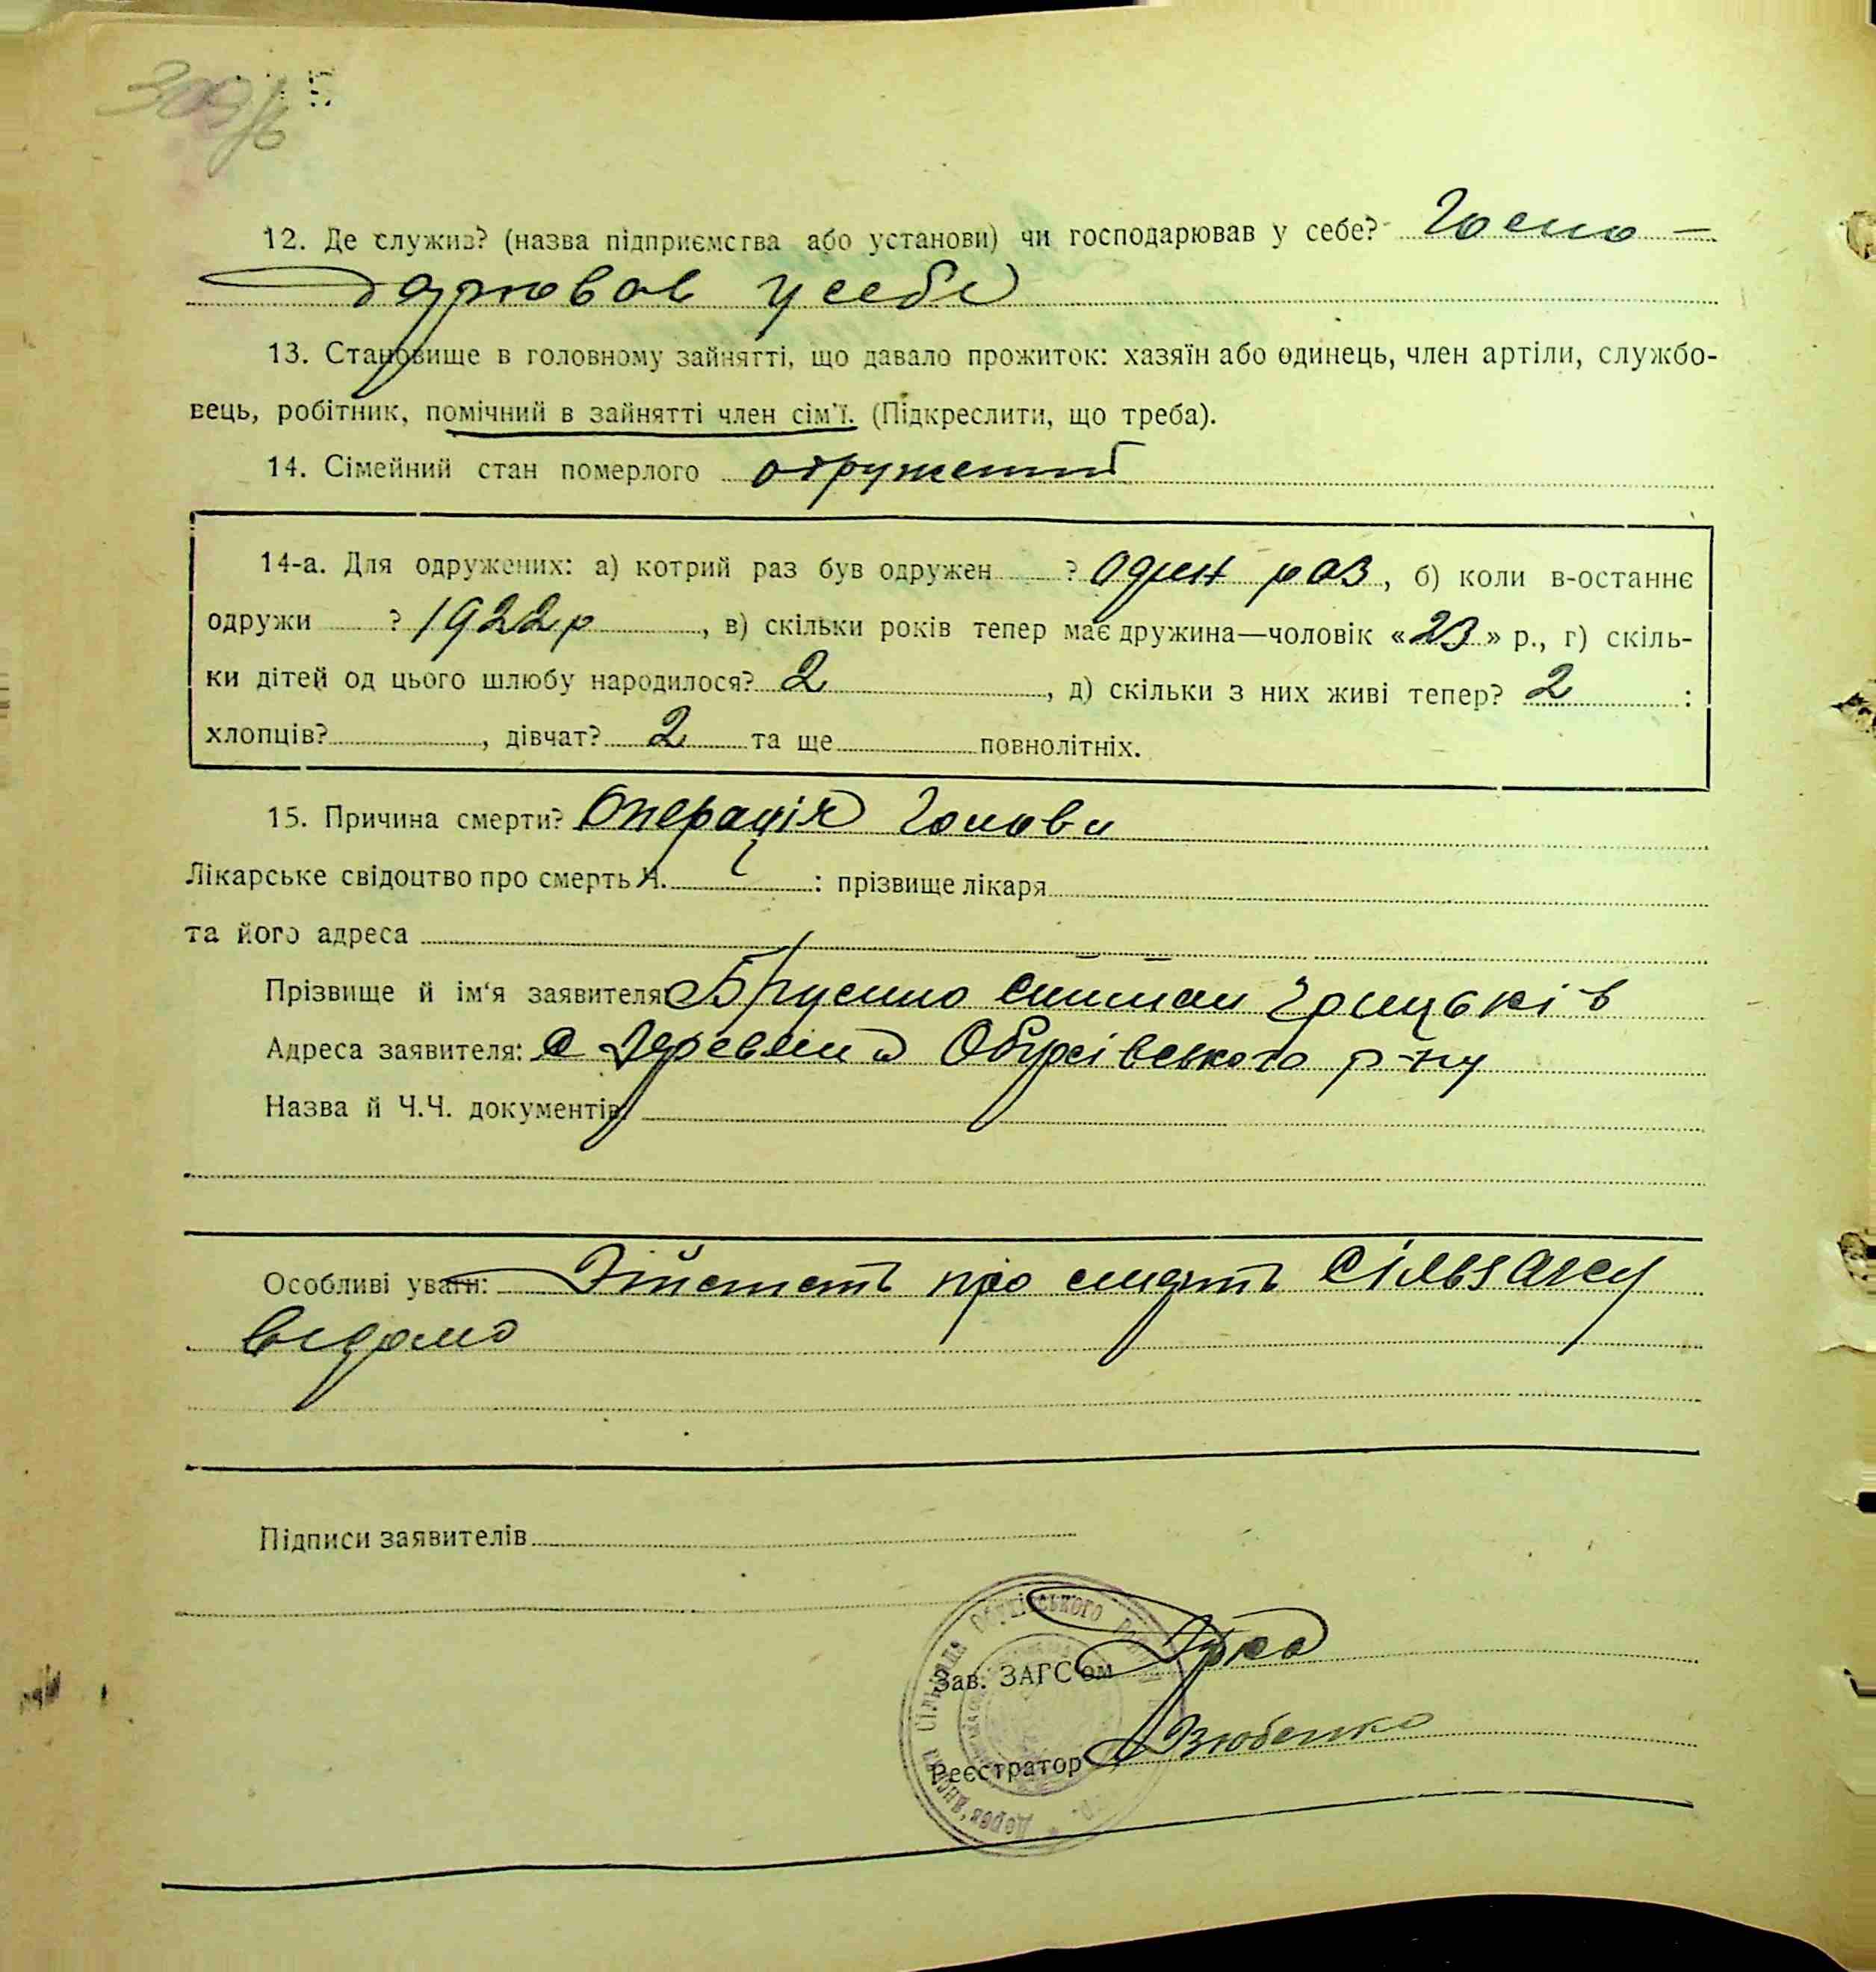 309/6
12. Де служив? (назва підприємства або установи) чи господарював у себе? Госпо-
дарював у себе
13. Становище в головному зайнятті, що давало прожиток: хазяїн або одинець, член артіли, службо-
вець, робітник, помічний в зайнятті член сім'ї. (Підкреслити, що треба).
14. Сімейний стан померлого одружений
14-а. Для одружених: а) котрий раз був одружен ? один раз, б) коли в-останнє
одружи ? 1922 р, в) скільки років тепер має дружина—чоловік «23» р., г) скіль-
ки дітей од цього шлюбу народилося? 2, д) скільки з них живі тепер? 2 :
хлопців? , дівчат? 2 та ще повнолітніх.
15. Причина смерти? Операція Голови
Лікарське свідоцтво про смерть Ч. : прізвище лікаря
та його адреса
Прізвище й ім'я заявителя: Грицьків
Адреса заявителя: с Деревяна Обухівського р-ну
Назва й Ч.Ч. документів:
Особливі уваги: про смерть сільзагсу
відомо
Підписи заявителів
Зав. ЗАГС'ом
Реєстратор Взюбенко
Дерев'янська сільрада Обухівського